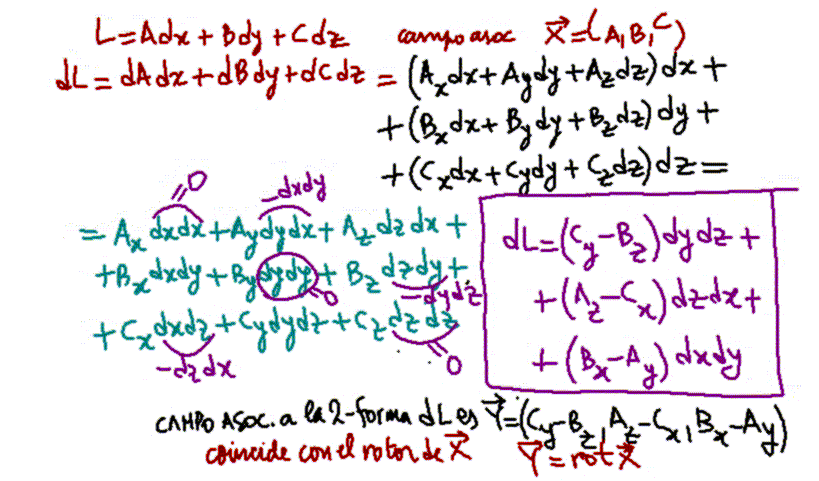 L = Adx + Bdy + Cdz campo asoc X⃗ = (A, B, C)
dL = dAdx + dBdy + dCdz = (Aₓdx + A_y dy + A_z dz) dx +
+ (Bₓdx + B_y dy + B_z dz) dy +
+ (Cₓdx + C_y dy + C_z dz) dz =
= 0
-dxdy
= Aₓ dxdx + A_y dydx + A_z dzdx +
+ Bₓ dxdy + B_y dydy + B_z dzdy +
= 0
-dydz
+ Cₓ dxdz + C_y dydz + C_z dzdz
-dzdx
= 0
dL = (C_y - B_z) dydz +
+ (A_z - Cₓ) dzdx +
+ (Bₓ - A_y) dxdy
CAMPO ASOC. a la 2-forma dL es Y⃗ = (C_y - B_z, A_z - Cₓ, Bₓ - A_y)
coincide con el rotor de X⃗ Y⃗ = rot X⃗